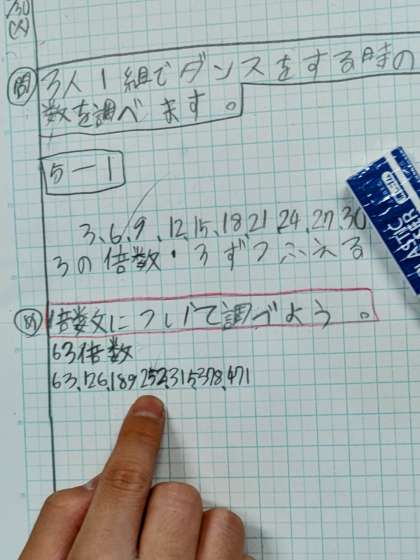 7/30
(火)
問 3人1組でダンスをする時の
数を調べます。
5-1
3,6,9,12,15,18,21,24,27,30
3の倍数・3ずつふえる
め 倍数について調べよう。
63倍数
63,126,189,252,315,378,471